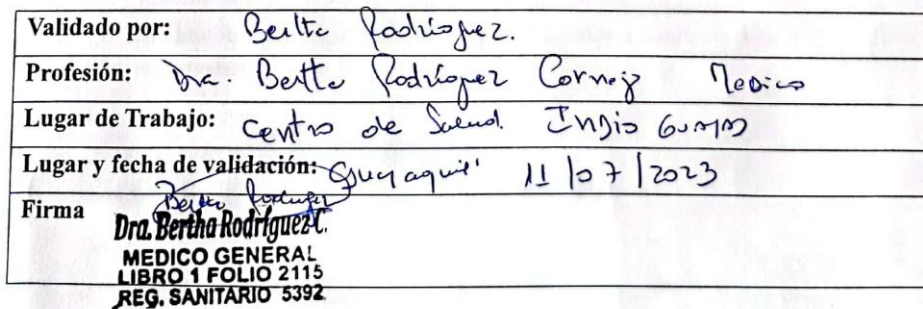 Validado por: Bertha Rodríguez.
Profesión: Dra. Bertha Rodríguez Cornejo Medico
Lugar de Trabajo: Centro de Salud. Indio Guayas
Lugar y fecha de validación: Guayaquil 11/07/2023
Firma Bertha Rodríguez
Dra. Bertha Rodríguez C.
MEDICO GENERAL
LIBRO 1 FOLIO 2115
REG. SANITARIO 5392